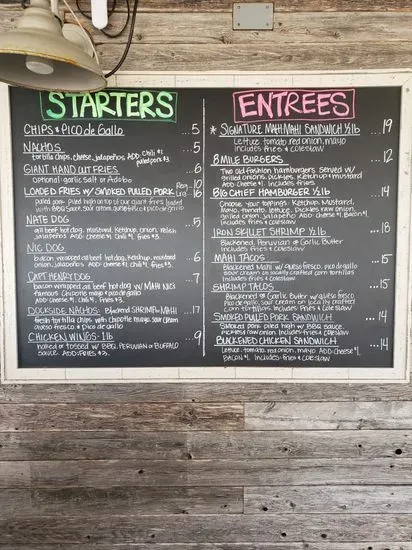 STARTERS
CHIPS & PICO de GALLO ... 5
NACHOS ... 5
tortilla chips, cheese, jalapeños ADD: Chili $1,
pulled pork $3.
GIANT HAND CUT FRIES ... 6
optional: garlic salt or Adobo
LOADED FRIES w/ SMOKED PULLED PORK Reg. 10
Lrg. 16
pulled pork piled high on top of our giant fries loaded
with BBQ sauce, sour cream, queso fresco & pico de gallo
NATE DOG ... 5
all beef hot dog, mustard, ketchup, onion, relish
jalapeños ADD: cheese $1, chili $1, fries $3.
NIC DOG ... 6
bacon wrapped all beef hot dog, ketchup, mustard
onion, jalapeños ADD: cheese $1, chili $1, fries $3.
CAPT HENRY DOG ... 7
bacon wrapped all beef hot dog w/ MAHI NIC'S
famous chipotle mayo & pico de gallo
ADD: cheese $1, chili $1, fries $3.
DOCKSIDE NACHOS: Blackened SHRIMP or MAHI ... 17
fresh tortilla chips with chipotle mayo, sour cream
queso fresco & pico de gallo
CHICKEN WINGS · 1 lb ... 9
naked or tossed w/ BBQ, PERUVIAN or BUFFALO
sauce. ADD: FRIES $3.
ENTREES
* SIGNATURE MAHI MAHI SANDWICH 1/2 lb ... 19
Lettuce, tomato, red onion, mayo
includes fries & coleslaw
8 MILE BURGERS ... 12
Two old fashion hamburgers, served w/
grilled onions, pickles, ketchup & mustard
ADD: cheese $1. Includes fries
BIG CHIEF HAMBURGER 1/2 lb ... 14
Choose your toppings: Ketchup, Mustard,
Mayo, tomato, lettuce, pickles, raw onion,
grilled onion, jalapeño ADD: cheese $1, Bacon $1.
Includes fries & coleslaw
IRON SKILLET SHRIMP 1/2 lb ... 18
Blackened, Peruvian or Garlic Butter
Includes fries & coleslaw
MAHI TACOS ... 15
Blackened Mahi w/ queso fresco, pico de gallo
sour cream on locally crafted corn tortillas
Includes fries & coleslaw
SHRIMP TACOS ... 15
Blackened or Garlic Butter w/ queso fresco
Pico de gallo, sour cream on locally crafted
corn tortillas. Includes Fries & Coleslaw
SMOKED PULLED PORK SANDWICH ... 14
Smoked pork piled high w/ BBQ sauce,
pickled red onion. Includes fries & Coleslaw
BLACKENED CHICKEN SANDWICH ... 14
Lettuce, tomato, red onion, mayo ADD: Cheese $1,
BACON $1. Includes Fries & Coleslaw